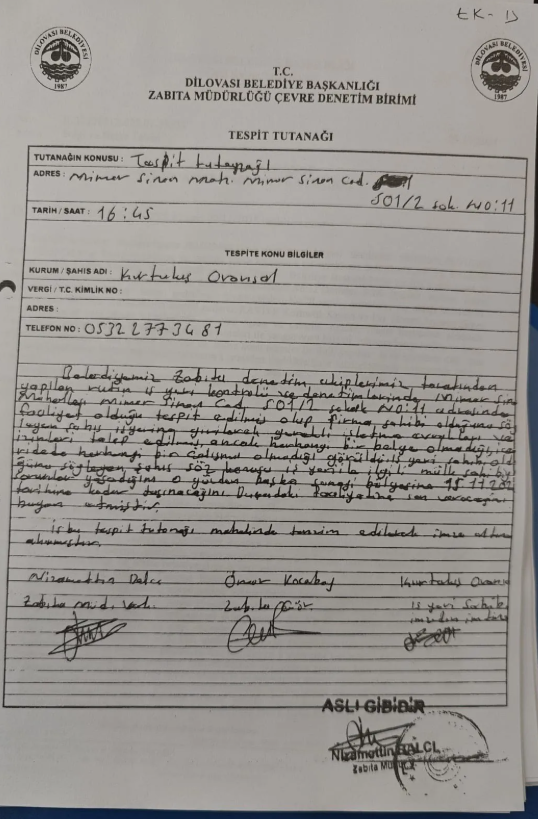 EK-D
DİLOVASI BELEDİYESİ
1987
DİLOVASI BELEDİYESİ
1987
T.C.
DİLOVASI BELEDİYE BAŞKANLIĞI
ZABITA MÜDÜRLÜĞÜ ÇEVRE DENETİM BİRİMİ
TESPİT TUTANAĞI
TUTANAĞIN KONUSU : Tespit tutanağı
ADRES : Mimar Sinan mah. Mimar Sinan Cad.
501/2 sok. NO:11
TARİH / SAAT : 16:45
TESPİTE KONU BİLGİLER
KURUM / ŞAHIS ADI : Kurtuluş Oransal
VERGİ / T.C. KİMLİK NO :
ADRES :
TELEFON NO : 0532 277 34 81
Belediyemiz Zabıta denetim ekiplerimiz tarafından
yapılan rutin iş yeri kontrolü ve denetimlerinde, Mimar Sinan
Mahallesi Mimar Sinan Cad. 501/2 sokak NO:11 adresinde
faaliyet olduğu tespit edilmiş olup firma sahibi olduğunu söy
leyen şahıs işyerine girilerek gerekli işletme evrakları ve
izinleri talep edilmiş, ancak herhangi bir belge olmadığı, içe
ride herhangi bir çalışma olmadığı görüldü. İş yeri sahibi old
ğunu söyleyen şahıs söz konusu iş yeriyle ilgili mülk sahibi
sorunlar yaşadığını o yüzden başka sanayi bölgesine 15.11.202
tarihine kadar taşınacağını Buradaki faaliyetine son vereceğini
beyan etmiştir.
iş bu tespit tutanağı mahalinde tanzim edilerek imza altına
alınmıştır.
Nizamettin Dalcı
Ömür Kocabaş
Kurtuluş Oransal
Zabıta Müd. Vek.
Zabıta Gör.
İş yeri Sahibi
imzadan imtina
ASLI GİBİDİR
Nizamettin DALCI
Zabıta Müdür V.